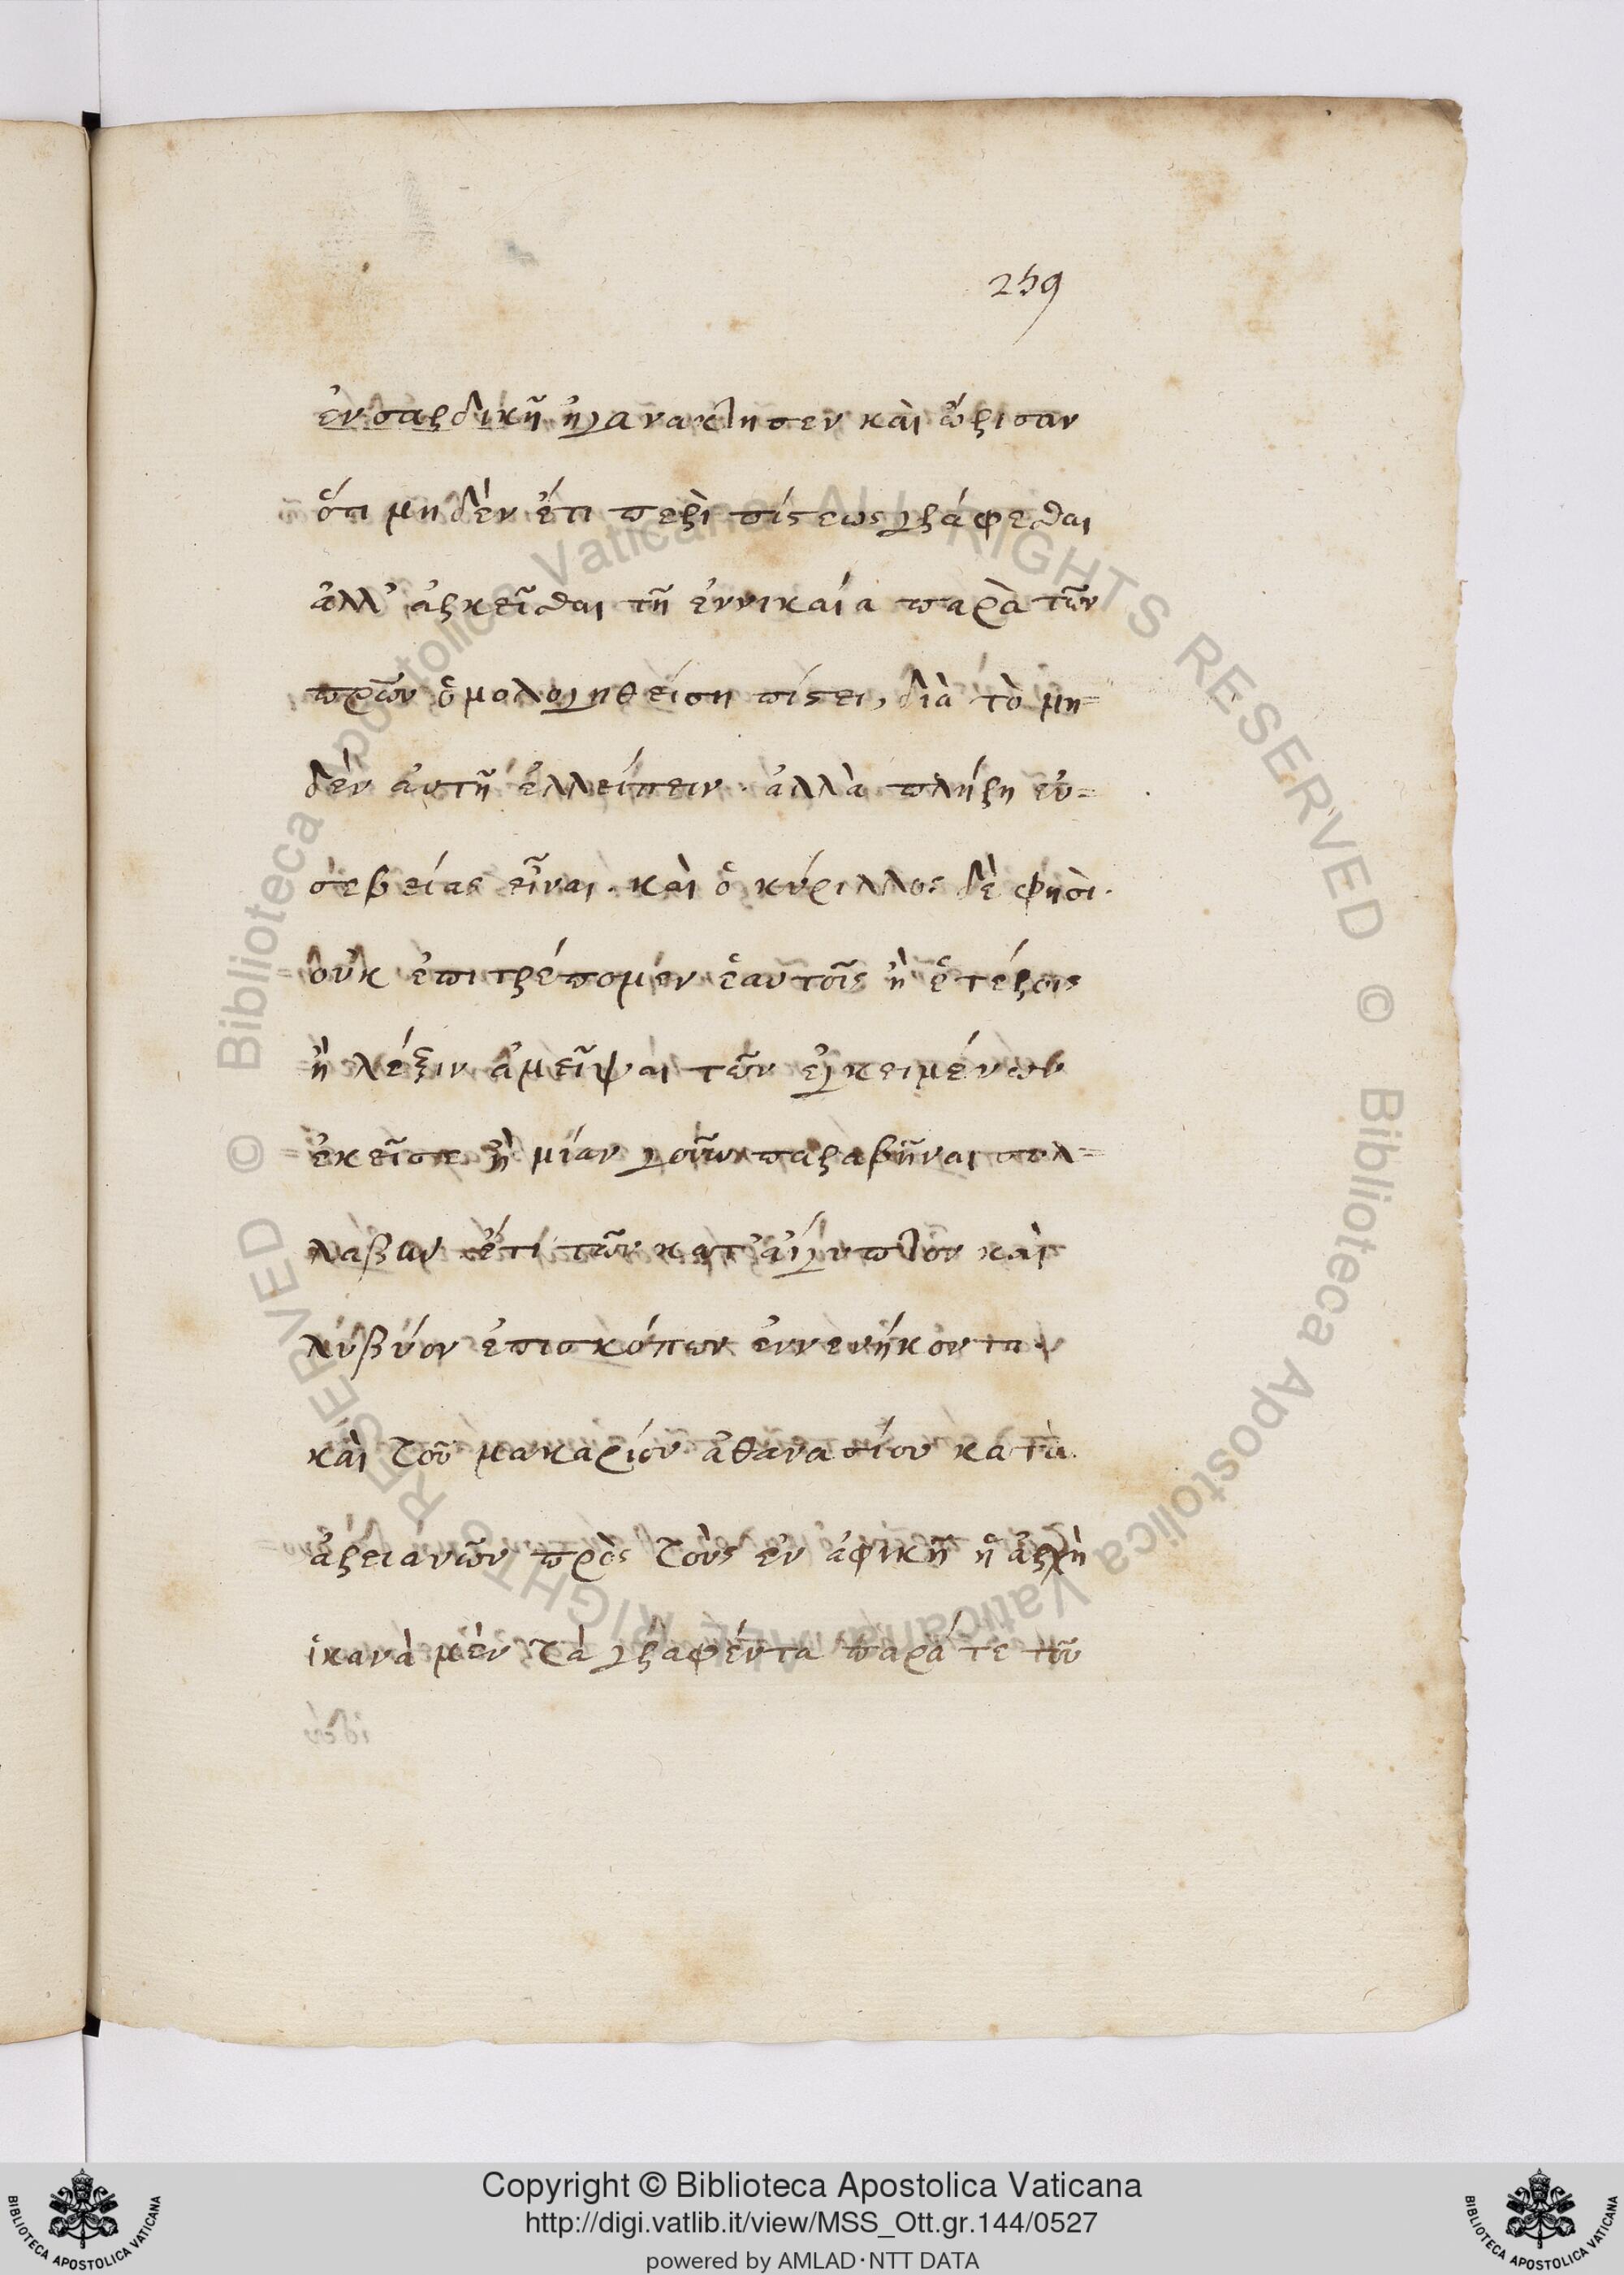 259
ἐν σαρδικῆ ἠγανακτησεν καὶ ὥρισαν
ὅτι μηδὲν ἔτι περὶ πίστεως γράφεσθαι
ἀλλ' ἀρκεῖσθαι τῆ ἐννικαία παρὰ τῶν
πρῶν ὁμολογηθείση πίστει, διὰ τὸ μη=
δὲν ἀυτῆ ἐλλείπειν · ἀλλὰ πλήρη εὐ=
σεβείας εἶναι . καὶ ὁ κύριλλος δὲ φησὶ .
οὐκ ἐπιτρέπομεν ἑαυτοῖς ἢ ἑτέροις
ἢ λέξιν ἀμεῖψαι τῶν ἐγκειμένων
ἐκεῖσε ἢ μίαν γοῦν παραβῆναι συλ=
λαβὴν ἔτι τῶν κατ' ἀίγυπτον καὶ
λυβύον ἐπισκόπων ἐννενήκοντα
καὶ τοῦ μακαρίου ἀθανασίου κατὰ
ἀρειανῶν πρὸς τοὺς ἐν ἀφρικῆ ἡ ἀρχὴ
ἱκανὰ μὲν τὰ γραφέντα παρά τε τοῦ
Copyright © Biblioteca Apostolica Vaticana
http://digi.vatlib.it/view/MSS_Ott.gr.144/0527
powered by AMLAD·NTT DATA
BIBLIOTECA APOSTOLICA VATICANA
BIBLIOTECA APOSTOLICA VATICANA
© Biblioteca Apostolica Vaticana ALL RIGHTS RESERVED
© Biblioteca Apostolica Vaticana ALL RIGHTS RESERVED